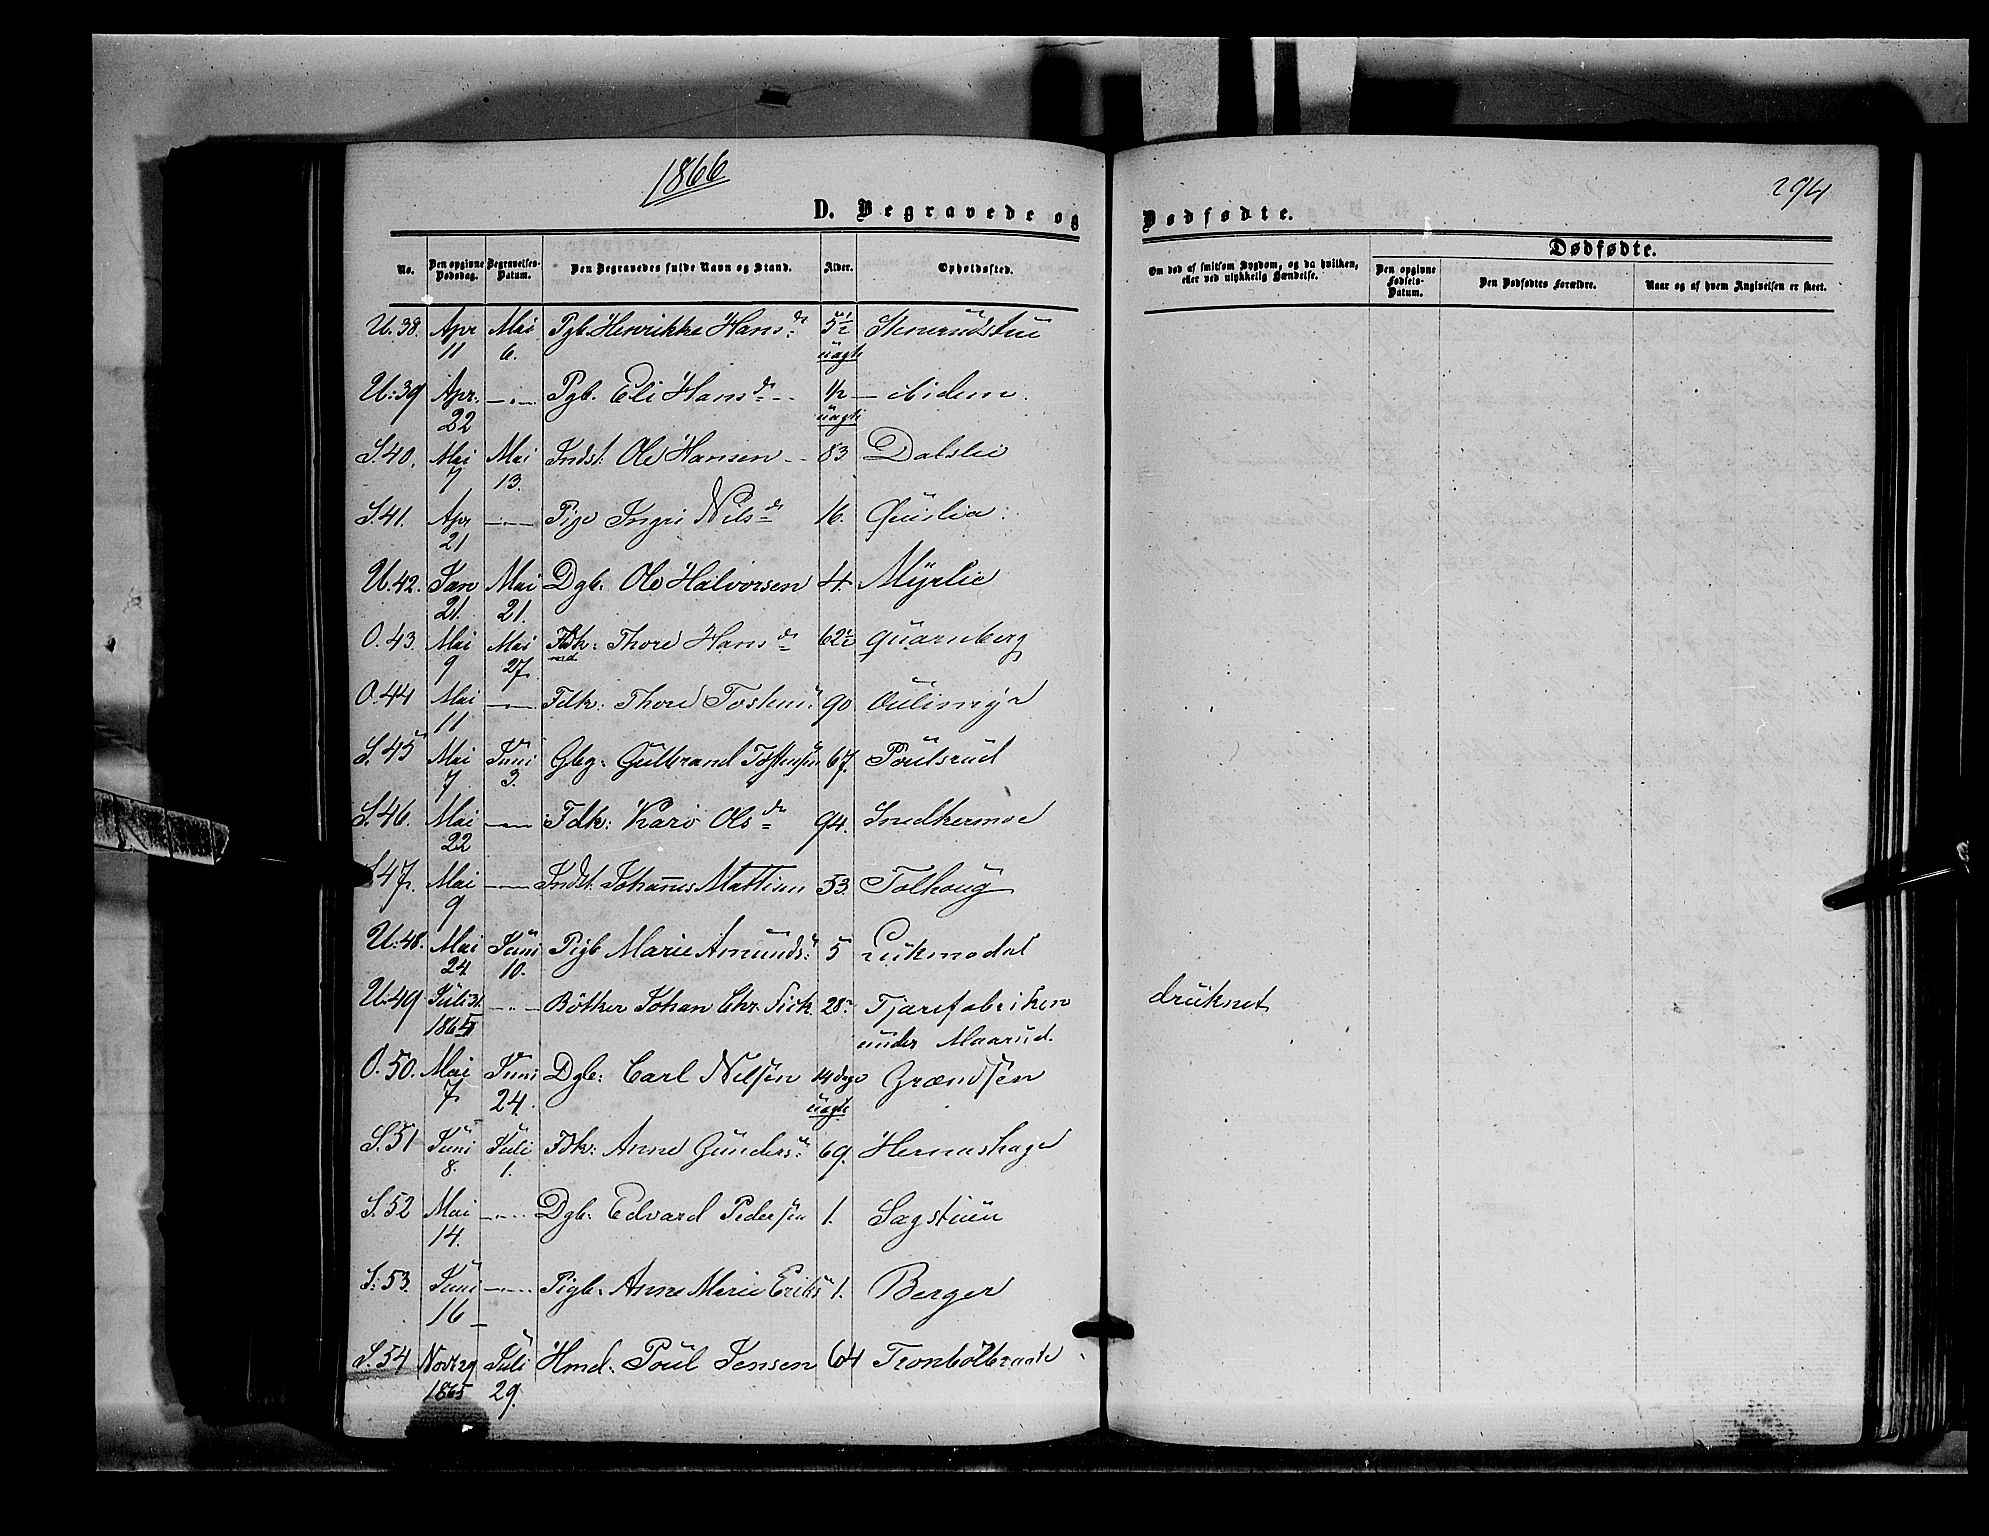 1866
294
D. Begravede og Dødfødte.
No. Den opgivne Dødsdag. Begravelses-Datum. Den Begravedes fulde Navn og Stand. Alder. Opholdssted. Om død af smitsom Sygdom, og da hvilken, eller ved ulykkelig Hændelse. Dødfødte. Den opgivne Fødsels-Datum. Den Dødfødtes Forældre. Naar og af hvem Angivelsen er skeet.
U. 38. Apr 11 Mai 6. Pgb Henrikke Hansdr 5 1/2 uægte
U. 39 Apr. 22 —"— Pgb. Eli Hansdr 1/2 uægte — ibidem.
S. 40. Mai 7 Mai 13. Indst. Ole Hansen 83 Dalslie
S. 41. Apr 21 —"— Pige Ingri Nilsdr 16.
U. 42. Jan 21. Mai 21. Dgb. Ole Halvorsen 4. Myrlie
O. 43. Mai 9 Mai 27. Thore Hansdr Quarnberg
O. 44 Mai 11 —"— Fdk: Thore 90
S. 45 Mai 7 Juni 3. Gbg: Gulbrand Tostensen 67. Poulsrud
S. 46. Mai 22 —"— Fdk: Kari Olsdr 94. Snedkermoe
S. 47. Mai 9 —"— Indst. Johannes 53. Tolhoug
U. 48. Mai 24 Juni 10. Pigb Marie Amunds: 5
U. 49 Juli 31 1865 —"— Bötker Johan Chr. 28 Tjærefabriken under Maarud. druknet
O. 50. Mai 7 Juni 24. Dgb: Carl Nilsen 14 dage uægte Grændsen
S. 51 Juni 8. Juli 1. Fdk: Anne Gunders: 69.
S. 52 Mai 14. —"— Dgb. Edvard Pedersen 1. Sagstuen
S. 53. Juni 16 —"— Pigb. Anne Marie Eriks 1. Berger
S. 54 Novbr 29 1865 Juli 29. Hmd. Poul Jensen 64